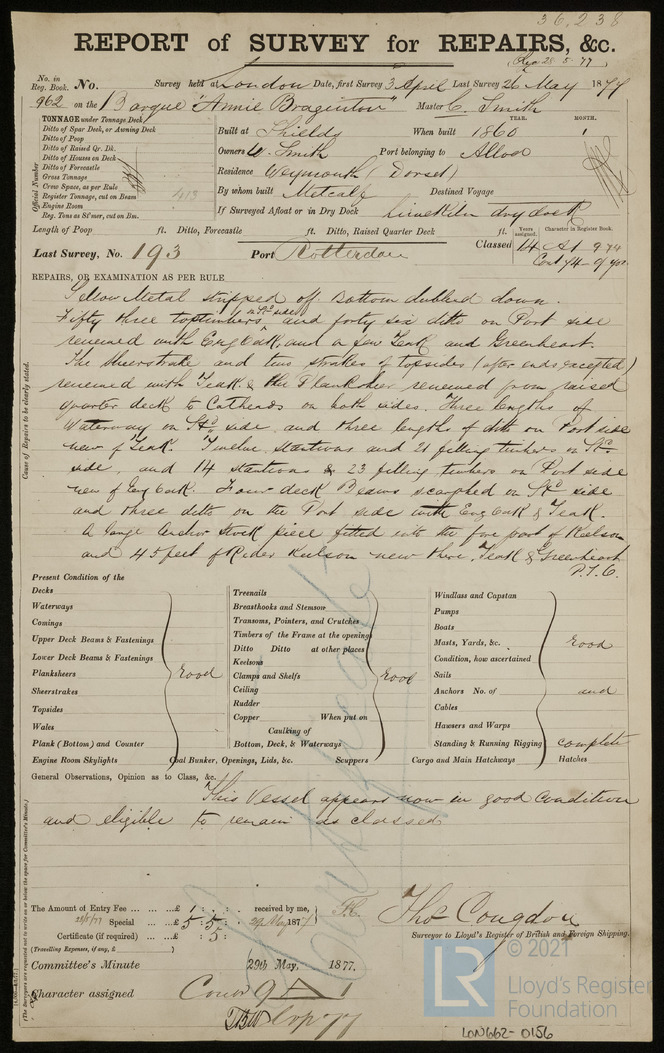 36,238
REPORT of SURVEY for REPAIRS, &c.
28.5.77
No. in Reg. Book. No. Survey held at London Date, first Survey 3 April Last Survey 26 May 1877
962 on the Barque "Annie Braginton" Master C. Smith
TONNAGE under Tonnage Deck
Ditto of Spar Deck, or Awning Deck
Ditto of Poop
Ditto of Raised Qr. Dk.
Ditto of Houses on Deck
Ditto of Forecastle
Gross Tonnage
Crew Space, as per Rule
Register Tonnage, cut on Beam 413
Engine Room
Reg. Tons as St'mer, cut on Bm.
Official Number
YEAR. MONTH.
Built at Shields When built 1860
Owners W. Smith Port belonging to
Residence Weymouth (Dorset)
By whom built Metcalf Destined Voyage
If Surveyed Afloat or in Dry Dock Limekiln dry dock
Length of Poop ft. Ditto, Forecastle ft. Ditto, Raised Quarter Deck ft.
Years assigned. Character in Register Book.
Last Survey, No. 193 Port Rotterdam Classed 14 A1 9 74
REPAIRS, OR EXAMINATION AS PER RULE
Yellow Metal stripped off. Bottom dubbed down.
Fifty three toptimbers on Stbd side and forty six ditto on Port side
renewed with Eng Oak, and a few Teak and Greenheart.
The Sheerstrake and two strakes of topsides (after ends excepted)
renewed with Teak & the Planksheer renewed from raised
quarter deck to Catheads on both sides. Three lengths of
Waterway on Stbd side and three lengths of ditto on Port side
new of Teak. Twelve stantions and 21 filling timbers on Stbd
side, and 14 stantions & 23 filling timbers on Port side
new of Eng Oak. Four deck Beams scarphed on Stbd side
and three ditto on the Port side with Eng Oak & Teak.
A large Anchor stock piece fitted with the fore part of Keelson
and 45 feet of Rider Keelson new there, Teak & Greenheart.
P.T.O.
Cause of Repairs to be clearly stated.
Present Condition of the
Decks
Waterways
Comings
Upper Deck Beams & Fastenings
Lower Deck Beams & Fastenings
Planksheers
Sheerstrakes
Topsides
Wales
Plank (Bottom) and Counter
Engine Room Skylights
Good
Treenails
Breasthooks and Stemson
Transoms, Pointers, and Crutches
Timbers of the Frame at the openings
Ditto Ditto at other places
Keelsons
Clamps and Shelfs
Ceiling
Rudder
Copper When put on
Caulking of
Bottom, Deck, & Waterways
Coal Bunker, Openings, Lids, &c. Scuppers
Good
Windlass and Capstan
Pumps
Boats
Masts, Yards, &c.
Condition, how ascertained
Sails
Anchors No. of
Cables
Hawsers and Warps
Standing & Running Rigging
Cargo and Main Hatchways Hatches
Good
and
complete
General Observations, Opinion as to Class, &c.
This Vessel appears now in good condition
and eligible to remain as classed
The Amount of Entry Fee ... £ 1 : : received by me,
Special ... £ 5 : 5 : 1877
Certificate (if required) ... £ : 5 :
(Travelling Expenses, if any, £ )
Thos Congdon
Surveyor to Lloyd's Register of British and Foreign Shipping.
Committee's Minute 29th May, 1877.
Character assigned
(The Surveyors are requested not to write on or below the space for Committee's Minute.)
© 2021
LR
Lloyd's Register
Foundation
LON662-0156